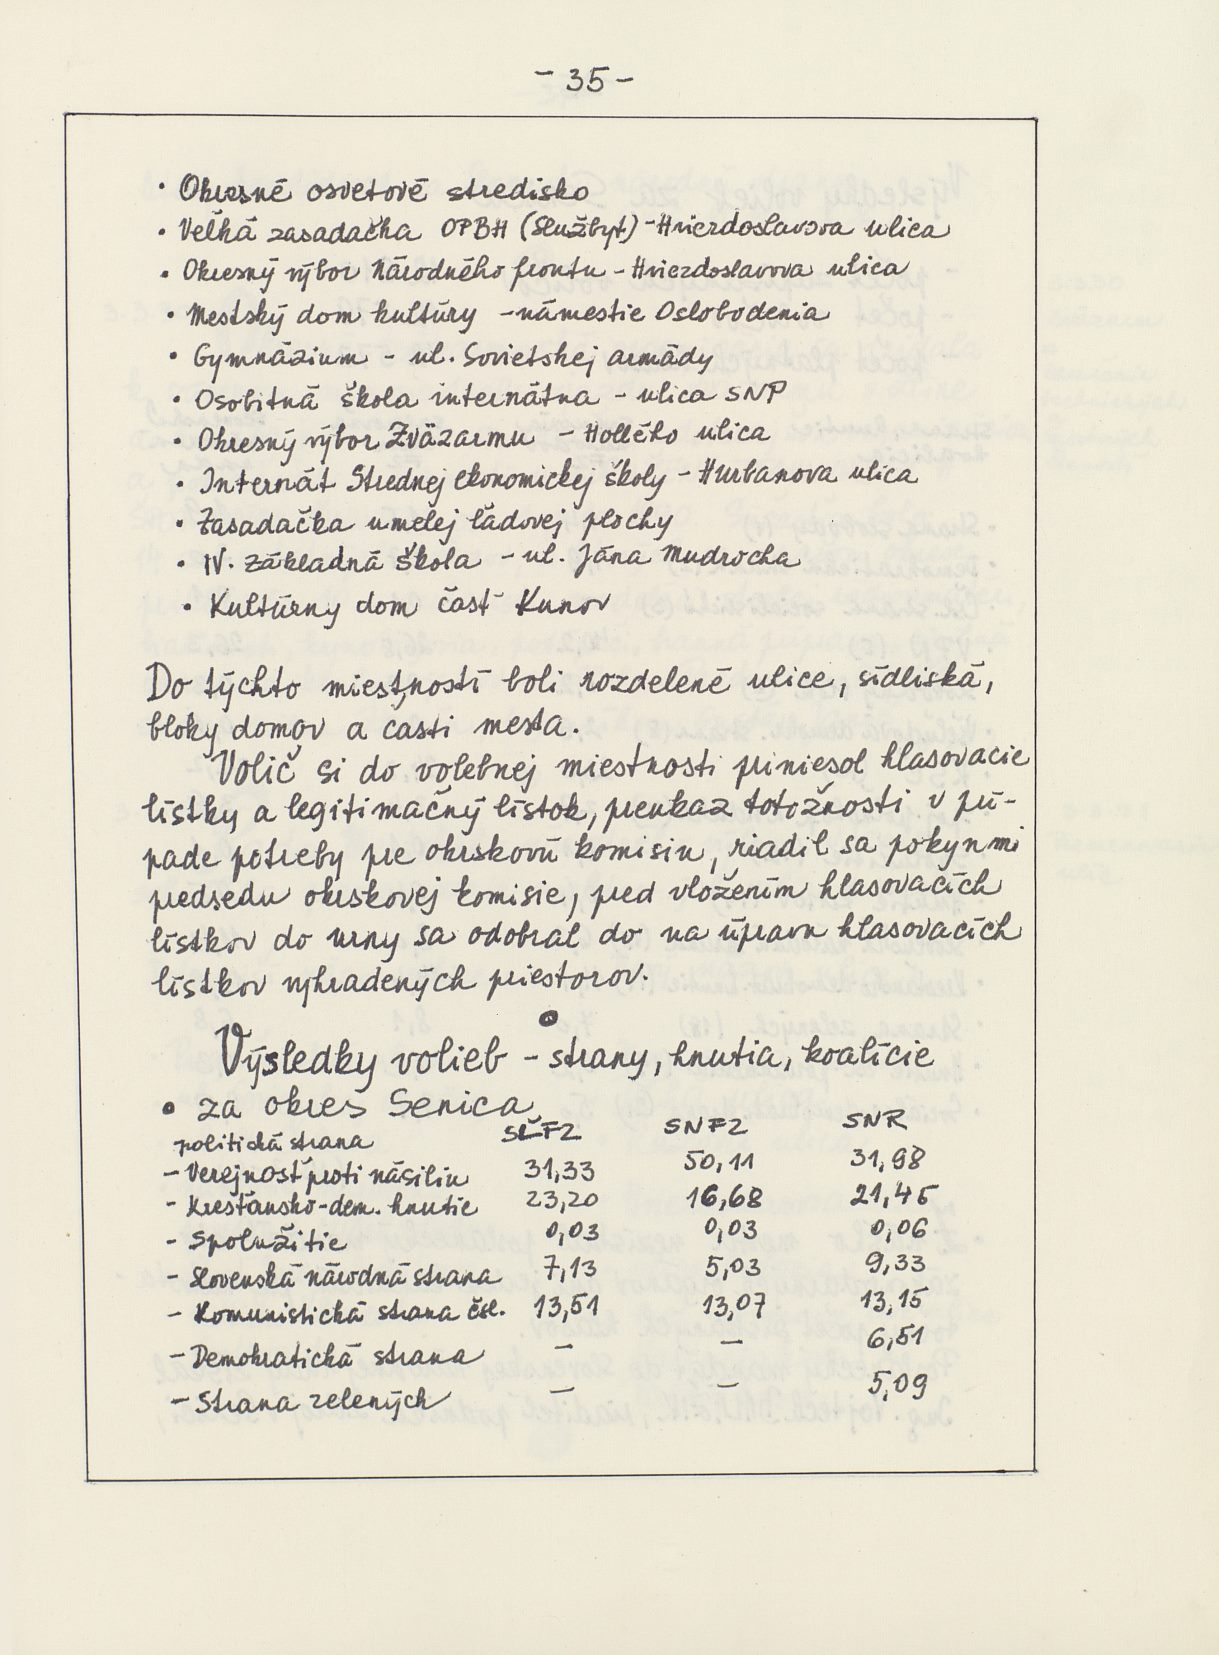 - 35 -
• Okresné osvetové stredisko
• Veľká zasadačka OPBH (Služby) - Hviezdoslavova ulica
• Okresný výbor Národného frontu - Hviezdoslavova ulica
• Mestský dom kultúry - námestie Oslobodenia
• Gymnázium - ul. Sovietskej armády
• Osobitná škola internátna - ulica SNP
• Okresný výbor Zväzarmu - Hollého ulica
• Internát Strednej ekonomickej školy - Hurbanova ulica
• Zasadačka umelej ľadovej plochy
• IV. základná škola - ul. Jána Mudrocha
• Kultúrny dom časť Kunov
Do týchto miestností boli rozdelené ulice, sídliská,
bloky domov a časti mesta.
Volič si do volebnej miestnosti priniesol hlasovacie
lístky a legitimačný lístok, preukaz totožnosti v prí-
pade potreby pre okrskovú komisiu, riadil sa pokynmi
predsedu okrskovej komisie, pred vložením hlasovacích
lístkov do urny sa odobral do na úpravu hlasovacích
lístkov vyhradených priestorov.
Výsledky volieb - strany, hnutia, koalície
• za okres Senica
politická strana SĽFZ SNFZ SNR
- Verejnosť proti násiliu 31,33 50,11 31,98
- Kresťansko-dem. hnutie 23,20 16,68 21,45
- Spolužitie 0,03 0,03 0,06
- Slovenská národná strana 7,13 5,03 9,33
- Komunistická strana čsl. 13,51 13,07 13,15
- Demokratická strana — — 6,51
- Strana zelených — — 5,09